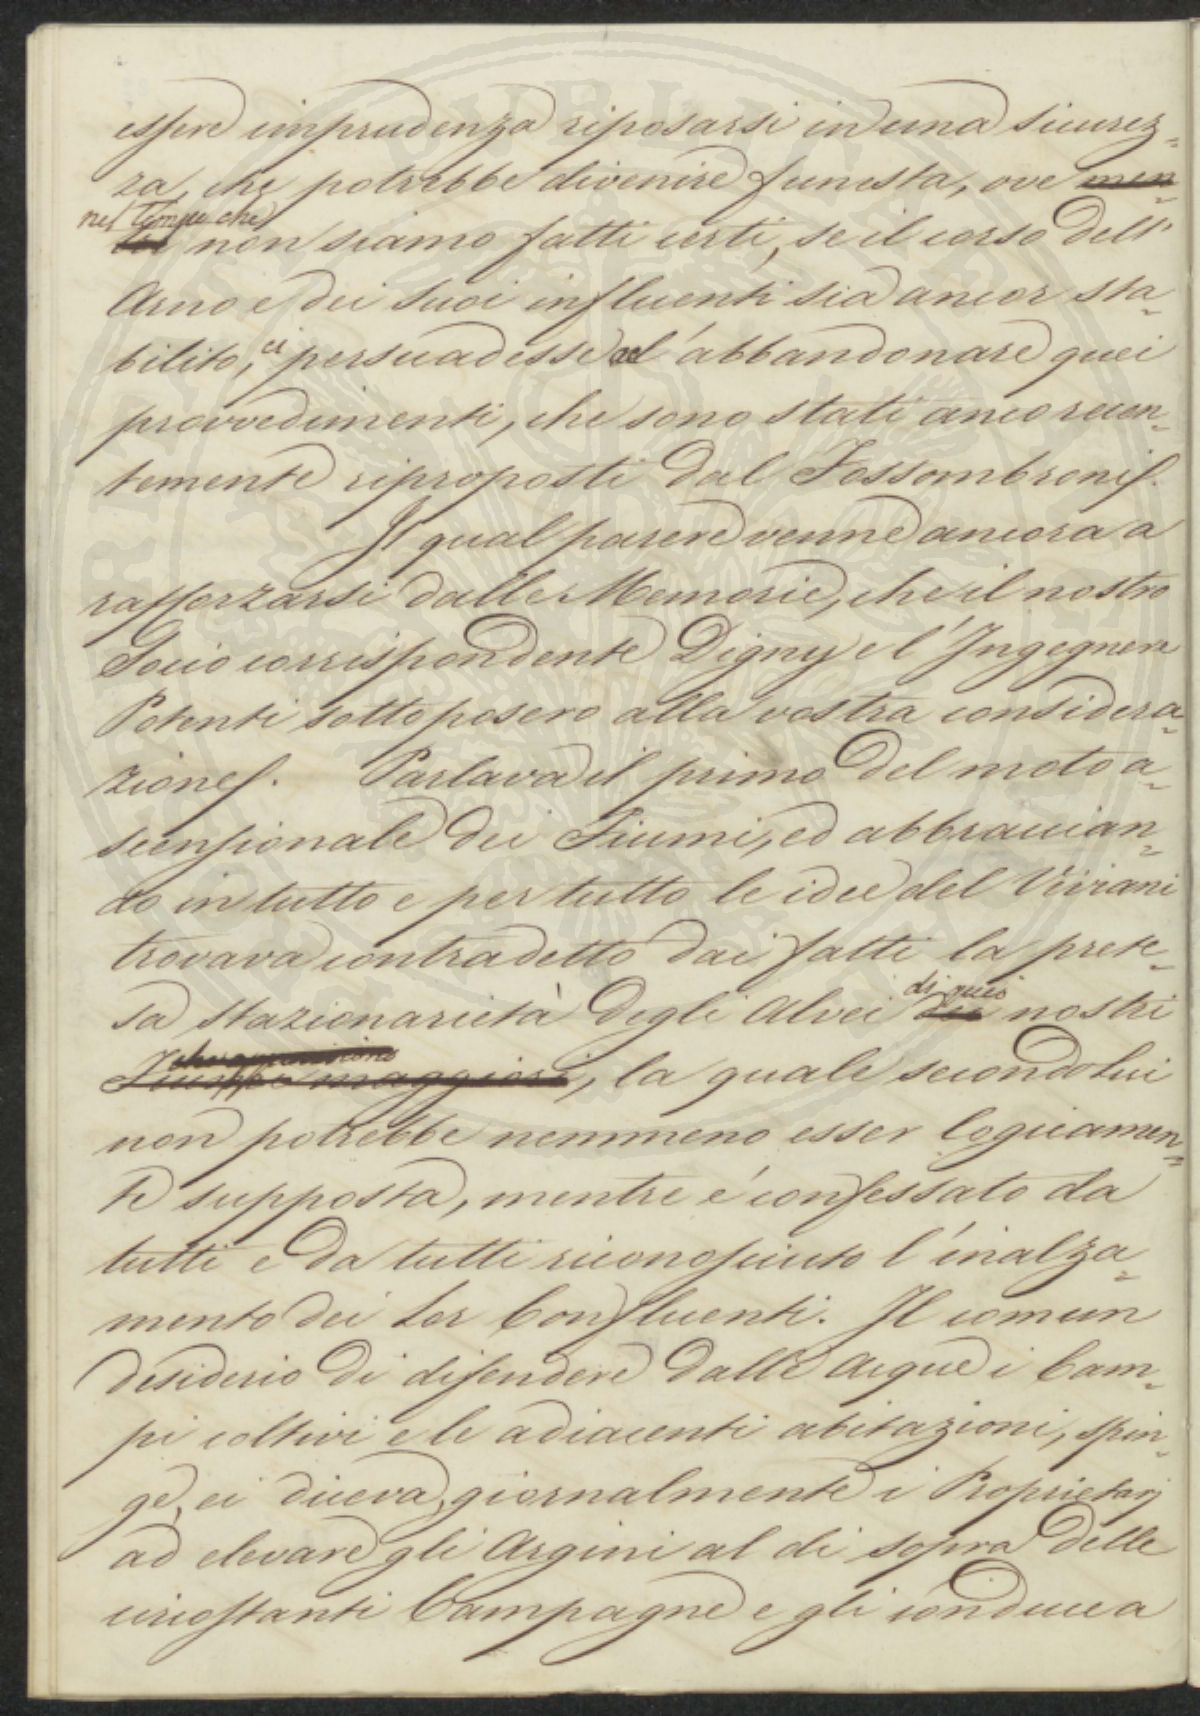 essere imprudenza riposarsi in una sicurez-
za, che potrebbe divenire funesta, ove men
nel tempo che
tre non siamo fatti certi, se il corso dell'
Arno e dei suoi influenti sia ancor sta-
bilito, ci persuadesse ad l'abbandonare quei
provvedimenti, che sono stati anco recen-
temente riproposti dal Fossombroni.
Il qual parere venne ancora a
rafforzarsi dalle Memorie, che il nostro
Socio corrispondente Digny e l'Ingegnere
Potenti sottoposero alla vostra considera-
zione. Parlava il primo del moto a-
scensionale dei Fiumi, ed abbraccian-
do in tutto e per tutto le idee del Viviani
trovava contradetto dai fatti la prete-
sa stazionarietà degli Alvei di quei dei nostri
Fiumi maggiori, la quale secondo lui
non potrebbe nemmeno esser logicamen-
te supposta, mentre é confessato da
tutti e da tutti riconosciuto l'inalza-
mento dei lor Confluenti. Il comun
desiderio di difendere dalle Acque i Cam-
pi coltivi e le adiacenti abitazioni, spin-
ge, ei diceva, giornalmente i Proprietarj
ad elevare gli Argini al di sopra delle
circostanti Campagne e gli conduce a